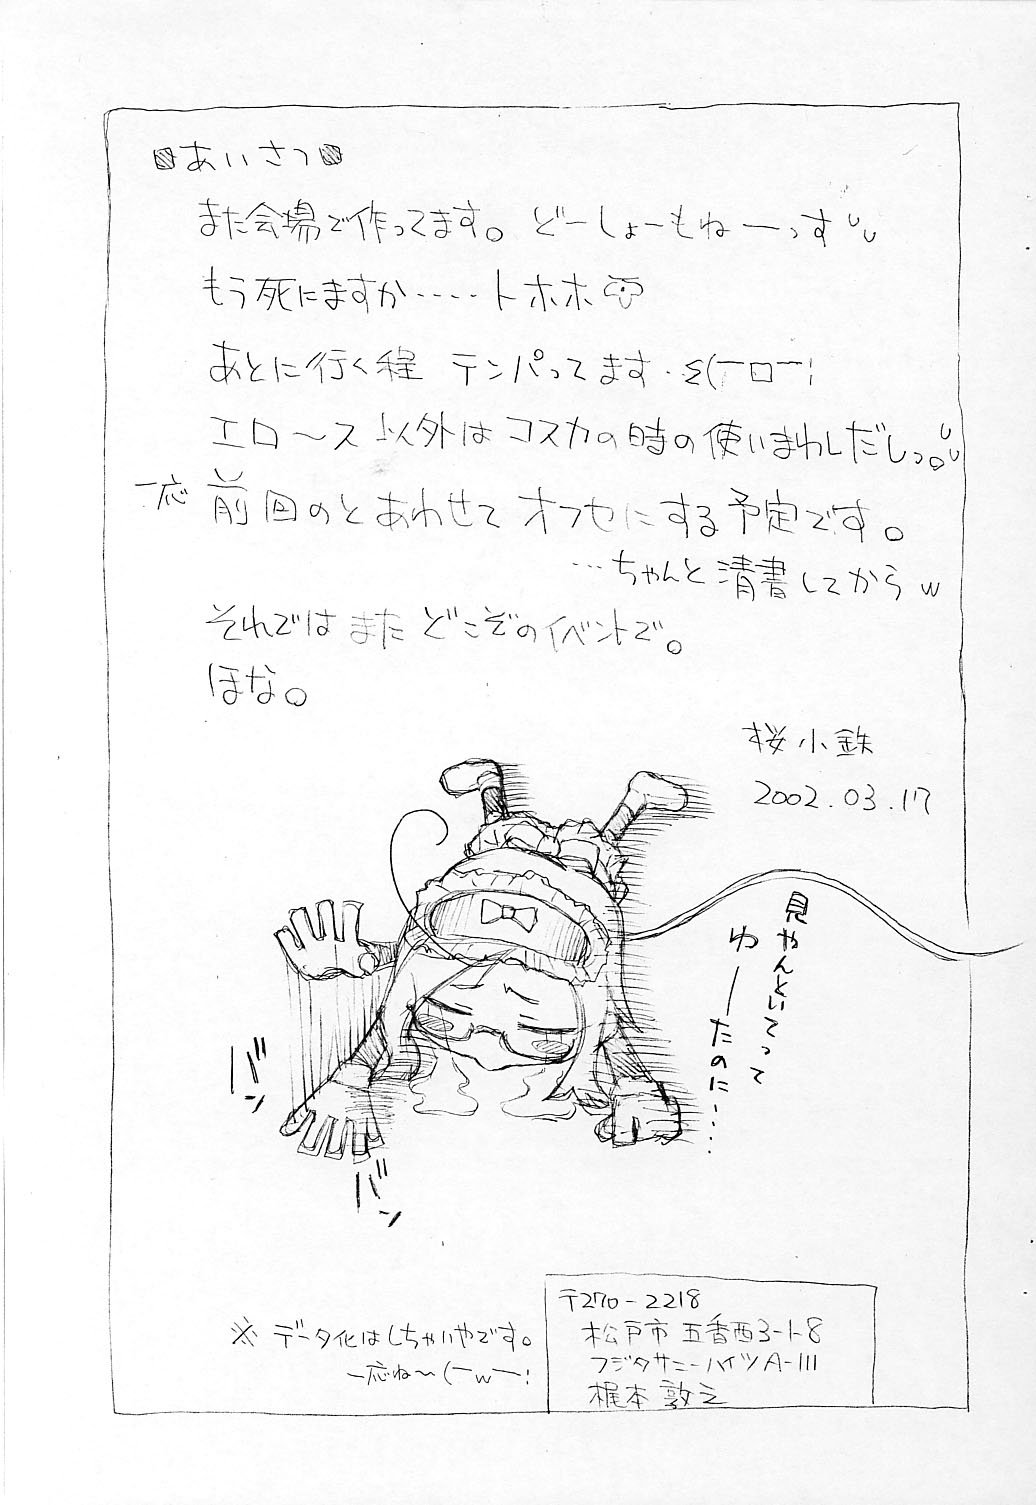 あいさつ
また会場で作ってます。どーしょーもねーっす
もう死にますか……トホホ
あとに行く程 テンパってます・Σ(￣ロ￣;
エロ〜ス以外はコスカの時の使いまわしだしっ。
一応 前回のとあわせてオフセにする予定です。
…ちゃんと清書してからw
それではまたどこぞのイベントで。
ほな。
桜小鉄
2002.03.17
見やんといてって
ゆーたのに……
バン
バン
※データ化はしちゃいやです。
一応ね〜(￣w￣;
〒270-2218
松戸市五香西3-1-8
フジタサニーハイツA-111
梶本敦之